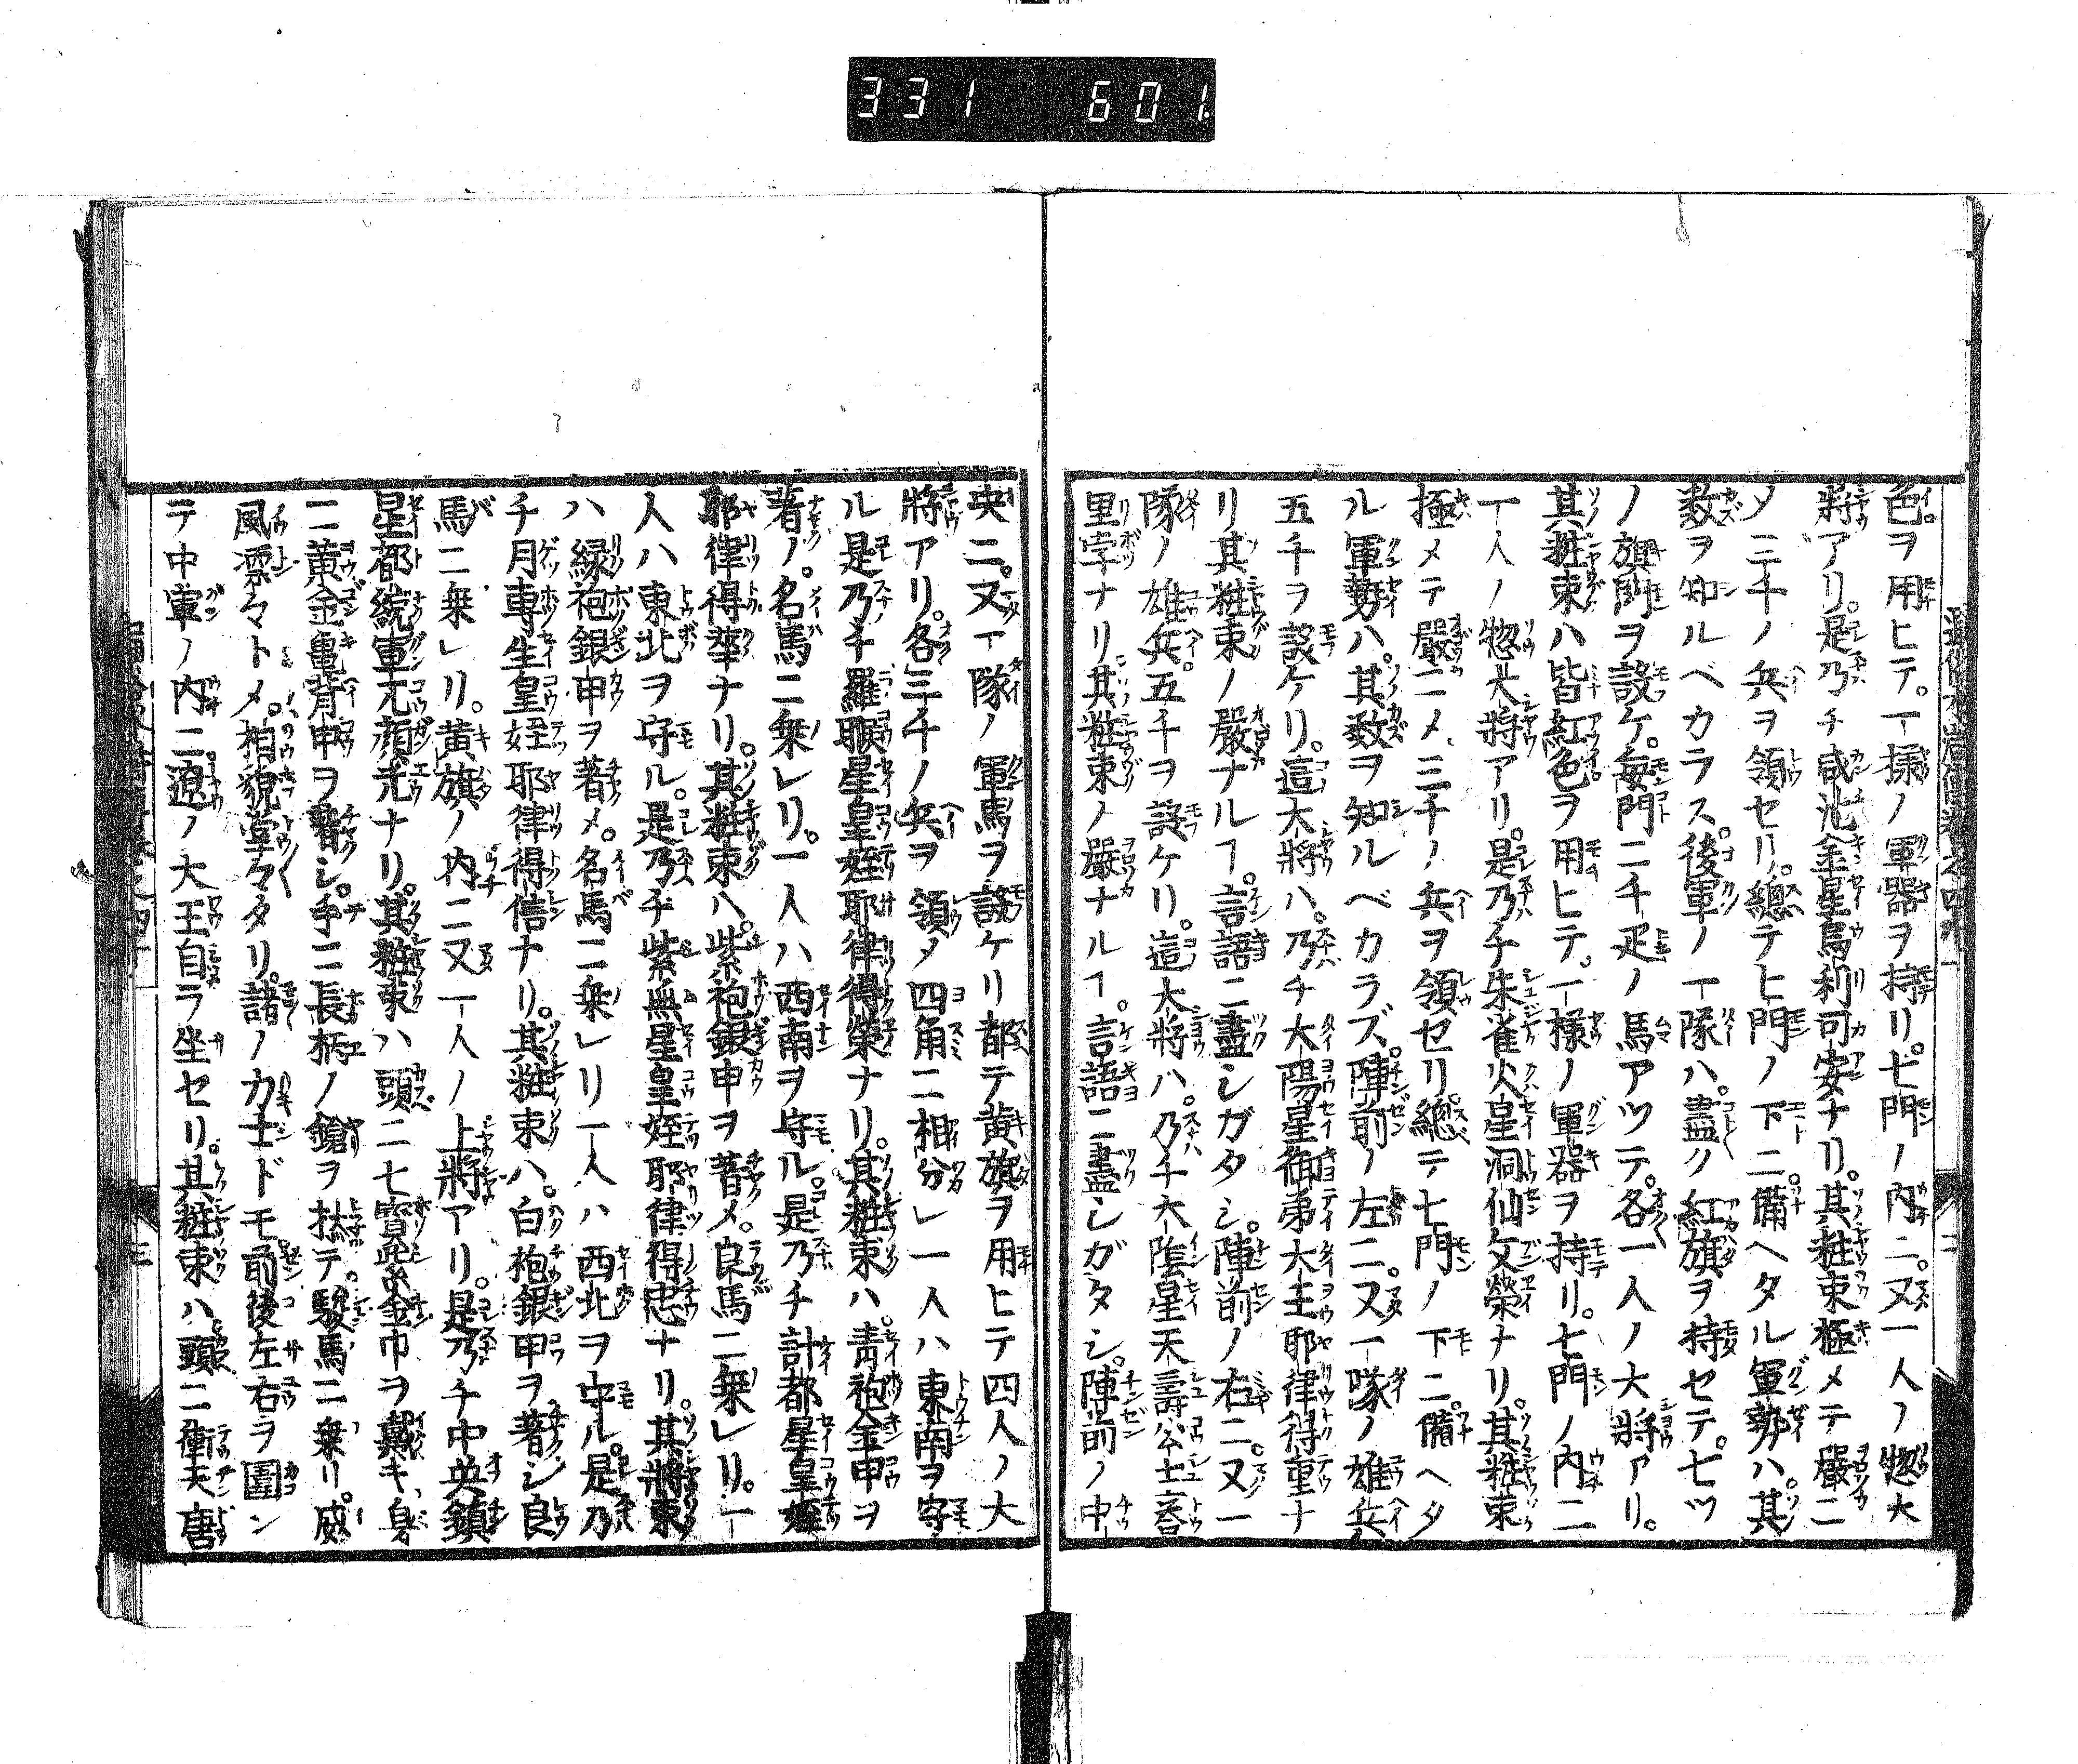 331 601
色ヲ用ヒテ。一様ノ軍器ヲ持リ。七門ノ内ニ。又一人ノ惣大
將アリ。是乃チ咸池金星烏利可安ナリ。其粧束極メテ嚴ニ
〆三千ノ兵ヲ領セリ。總テ七門ノ下ニ。備ヘタル軍勢ハ。其
数ヲ知ルベカラス。後軍ノ一隊ハ。盡ク紅旗ヲ持セテ。七ツ
ノ旗門ヲ設ケ。毎門ニ千疋ノ馬アツテ。各一人ノ大將アリ。
其粧束ハ皆紅色ヲ用ヒテ。一様ノ軍器ヲ持リ。七門ノ内ニ
一人ノ惣大將アリ。是乃チ朱雀火星洞仙文榮ナリ。其粧束
極メテ嚴ニ〆三千ノ兵ヲ領セリ。總テ七門ノ下ニ。備ヘタ
ル軍勢ハ。其数ヲ知ルベカラズ。陣前ノ左ニ。又一隊ノ雄兵
五千ヲ設ケリ。這大將ハ。乃チ大陽星御弟大王耶律得重ナ
リ其粧束ノ嚴ナルヿ。言語ニ盡シガタシ。陣前ノ右ニ。又一
隊ノ雄兵。五千ヲ設ケリ。這大將ハ。乃チ大陰星天壽公主荅
里孛ナリ其粧束ノ嚴ナルヿ。言語ニ盡シガタシ。陣前ノ中
央ニ。又一隊ノ軍馬ヲ設ケリ都テ黄旗ヲ用ヒテ四人ノ大
將アリ。各三千ノ兵ヲ領〆四角ニ相分レ一人ハ東南ヲ守
ル是乃チ羅睺星皇姪耶律得榮ナリ。其粧束ハ。青袍金甲ヲ
著〆。名馬ニ乗レリ。一人ハ西南ヲ守ル。是乃チ計都星皇姪
耶律得華ナリ。其粧束ハ。紫袍銀甲ヲ著〆。良馬ニ乗レリ。一
人ハ東北ヲ守ル。是乃チ紫炁星皇姪耶律得忠ナリ。其粧束
ハ綠袍銀甲ヲ著〆。名馬ニ乗レリ一人ハ西北ヲ守ル。是乃
チ月孛星皇姪耶律得信ナリ。其粧束ハ。白袍銀甲ヲ著シ良
馬ニ乗レリ。黄旗ノ内ニ又一人ノ上將アリ。是乃チ中央鎮
星都統軍兀顔光ナリ。其粧束ハ頭ニ七寳紫金巾ヲ戴キ、身
ニ黄金龜背甲ヲ著シ。手ニ長柄ノ鎗ヲ挾テ。駿馬ニ乗リ。威
風凛々トメ。相貌堂々タリ。諸ノ力士ドモ前後左右ヲ圍ン
テ中軍ノ内ニ。遼ノ大王自ラ坐セリ。其粧束ハ頭ニ衝天唐